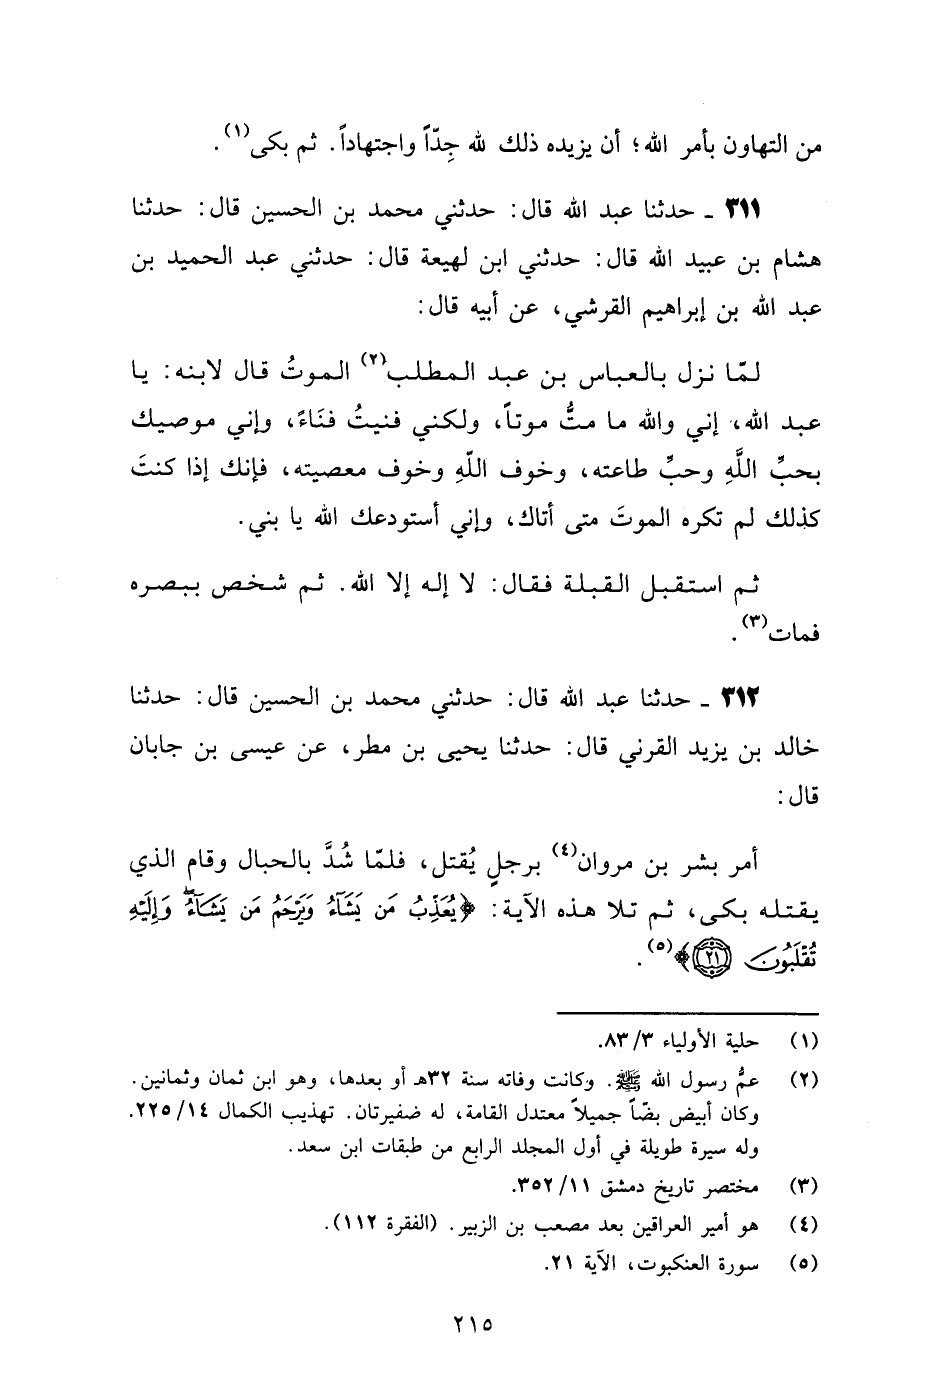 من التهاون بأمر الله؛ أن يزيده ذلك لله جِدّاً واجتهاداً. ثم بكى(١).
٣١١ ـ حدثنا عبد الله قال: حدثني محمد بن الحسين قال: حدثنا
هشام بن عبيد الله قال: حدثني ابن لهيعة قال: حدثني عبد الحميد بن
عبد الله بن إبراهيم القرشي، عن أبيه قال:
لمّا نزل بالعباس بن عبد المطلب(٢) الموتُ قال لابنه: يا
عبد الله، إني والله ما متُّ موتاً، ولكني فنيتُ فنَاءً، وإني موصيك
بحبِّ اللَّهِ وحبِّ طاعته، وخوف اللّهِ وخوف معصيته، فإنك إذا كنتَ
كذلك لم تكره الموتَ متى أتاك، وإني أستودعك الله يا بني.
ثم استقبل القبلة فقال: لا إله إلا الله. ثم شخص ببصره
فمات(٣).
٣١٢ ـ حدثنا عبد الله قال: حدثني محمد بن الحسين قال: حدثنا
خالد بن يزيد القرني قال: حدثنا يحيى بن مطر، عن عيسى بن جابان
قال:
أمر بشر بن مروان(٤) برجلٍ يُقتل، فلمّا شُدَّ بالحبال وقام الذي
يقتله بكى، ثم تلا هذه الآية: ﴿يُعَذِّبُ مَن يَشَآءُ وَيَرْحَمُ مَن يَشَآءُۖ وَإِلَيْهِ
تُقْلَبُونَ ٢١﴾(٥).
(١) حلية الأولياء ٨٣/٣.
(٢) عمُّ رسول الله ﷺ. وكانت وفاته سنة ٣٢هـ أو بعدها، وهو ابن ثمان وثمانين.
وكان أبيض بضّاً جميلاً معتدل القامة، له ضفيرتان. تهذيب الكمال ٢٢٥/١٤.
وله سيرة طويلة في أول المجلد الرابع من طبقات ابن سعد.
(٣) مختصر تاريخ دمشق ٣٥٢/١١.
(٤) هو أمير العراقين بعد مصعب بن الزبير. (الفقرة ١١٢).
(٥) سورة العنكبوت، الآية ٢١.
٢١٥